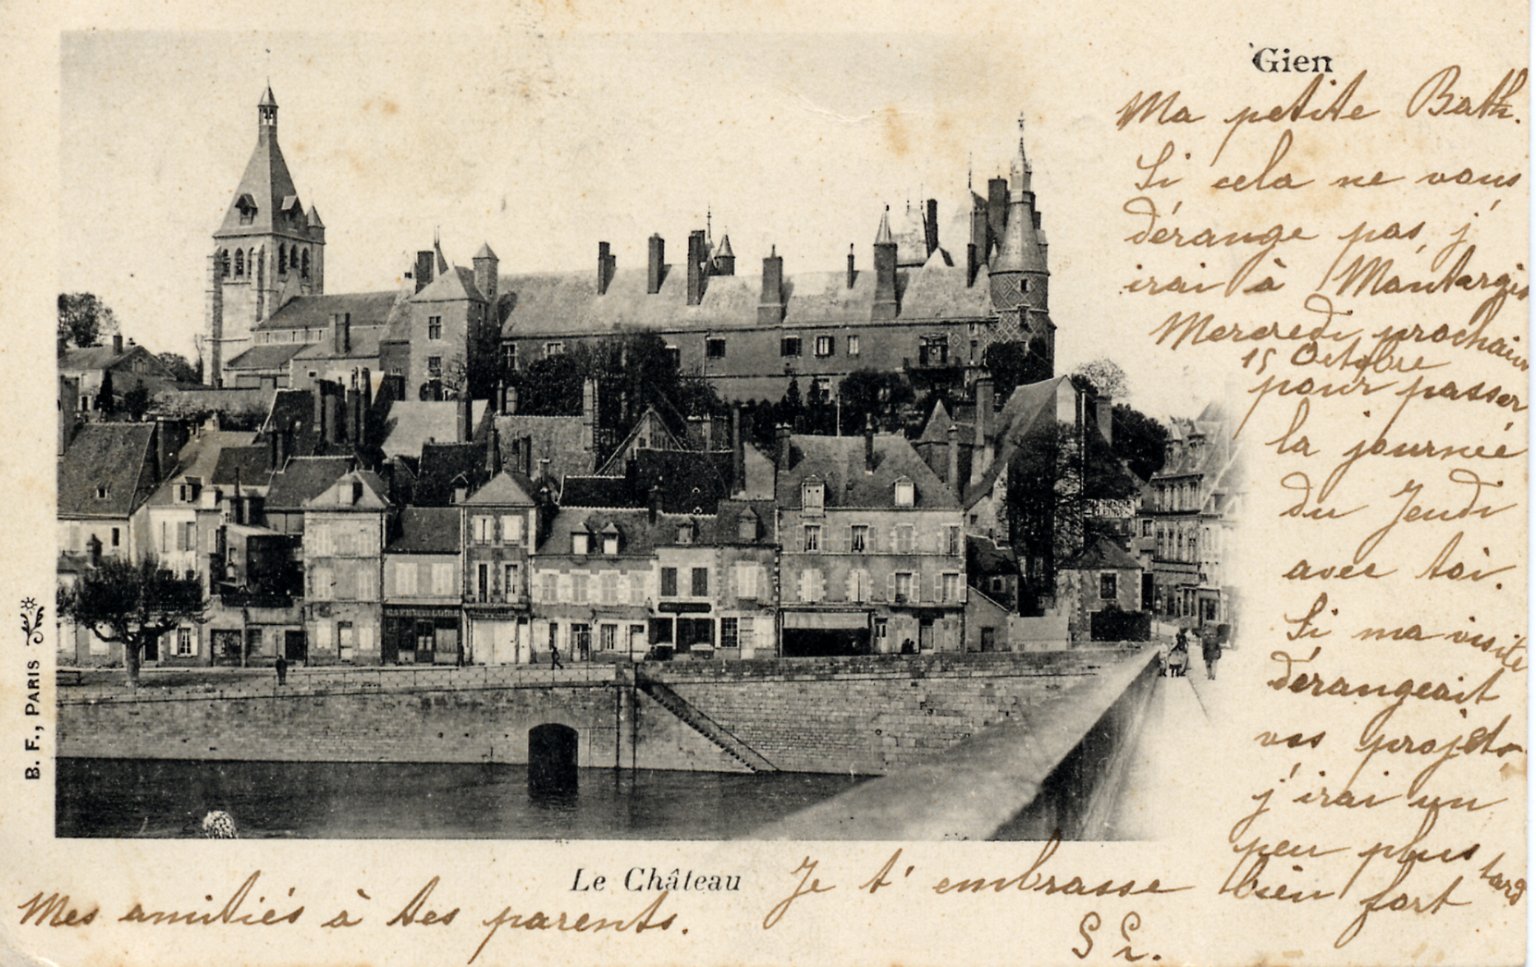 Gien
Ma petite Bath.
Si cela ne vous
dérange pas, j'
irai à Montargis
Mercredi prochain
15 Octobre
pour passer
la journée
du Jeudi
avec toi.
Si ma visite
dérangeait
vos projets,
j'irai un
peu plus tard
Je t'embrasse bien fort
Mes amitiés à tes parents.
Le Château
B. F., PARIS